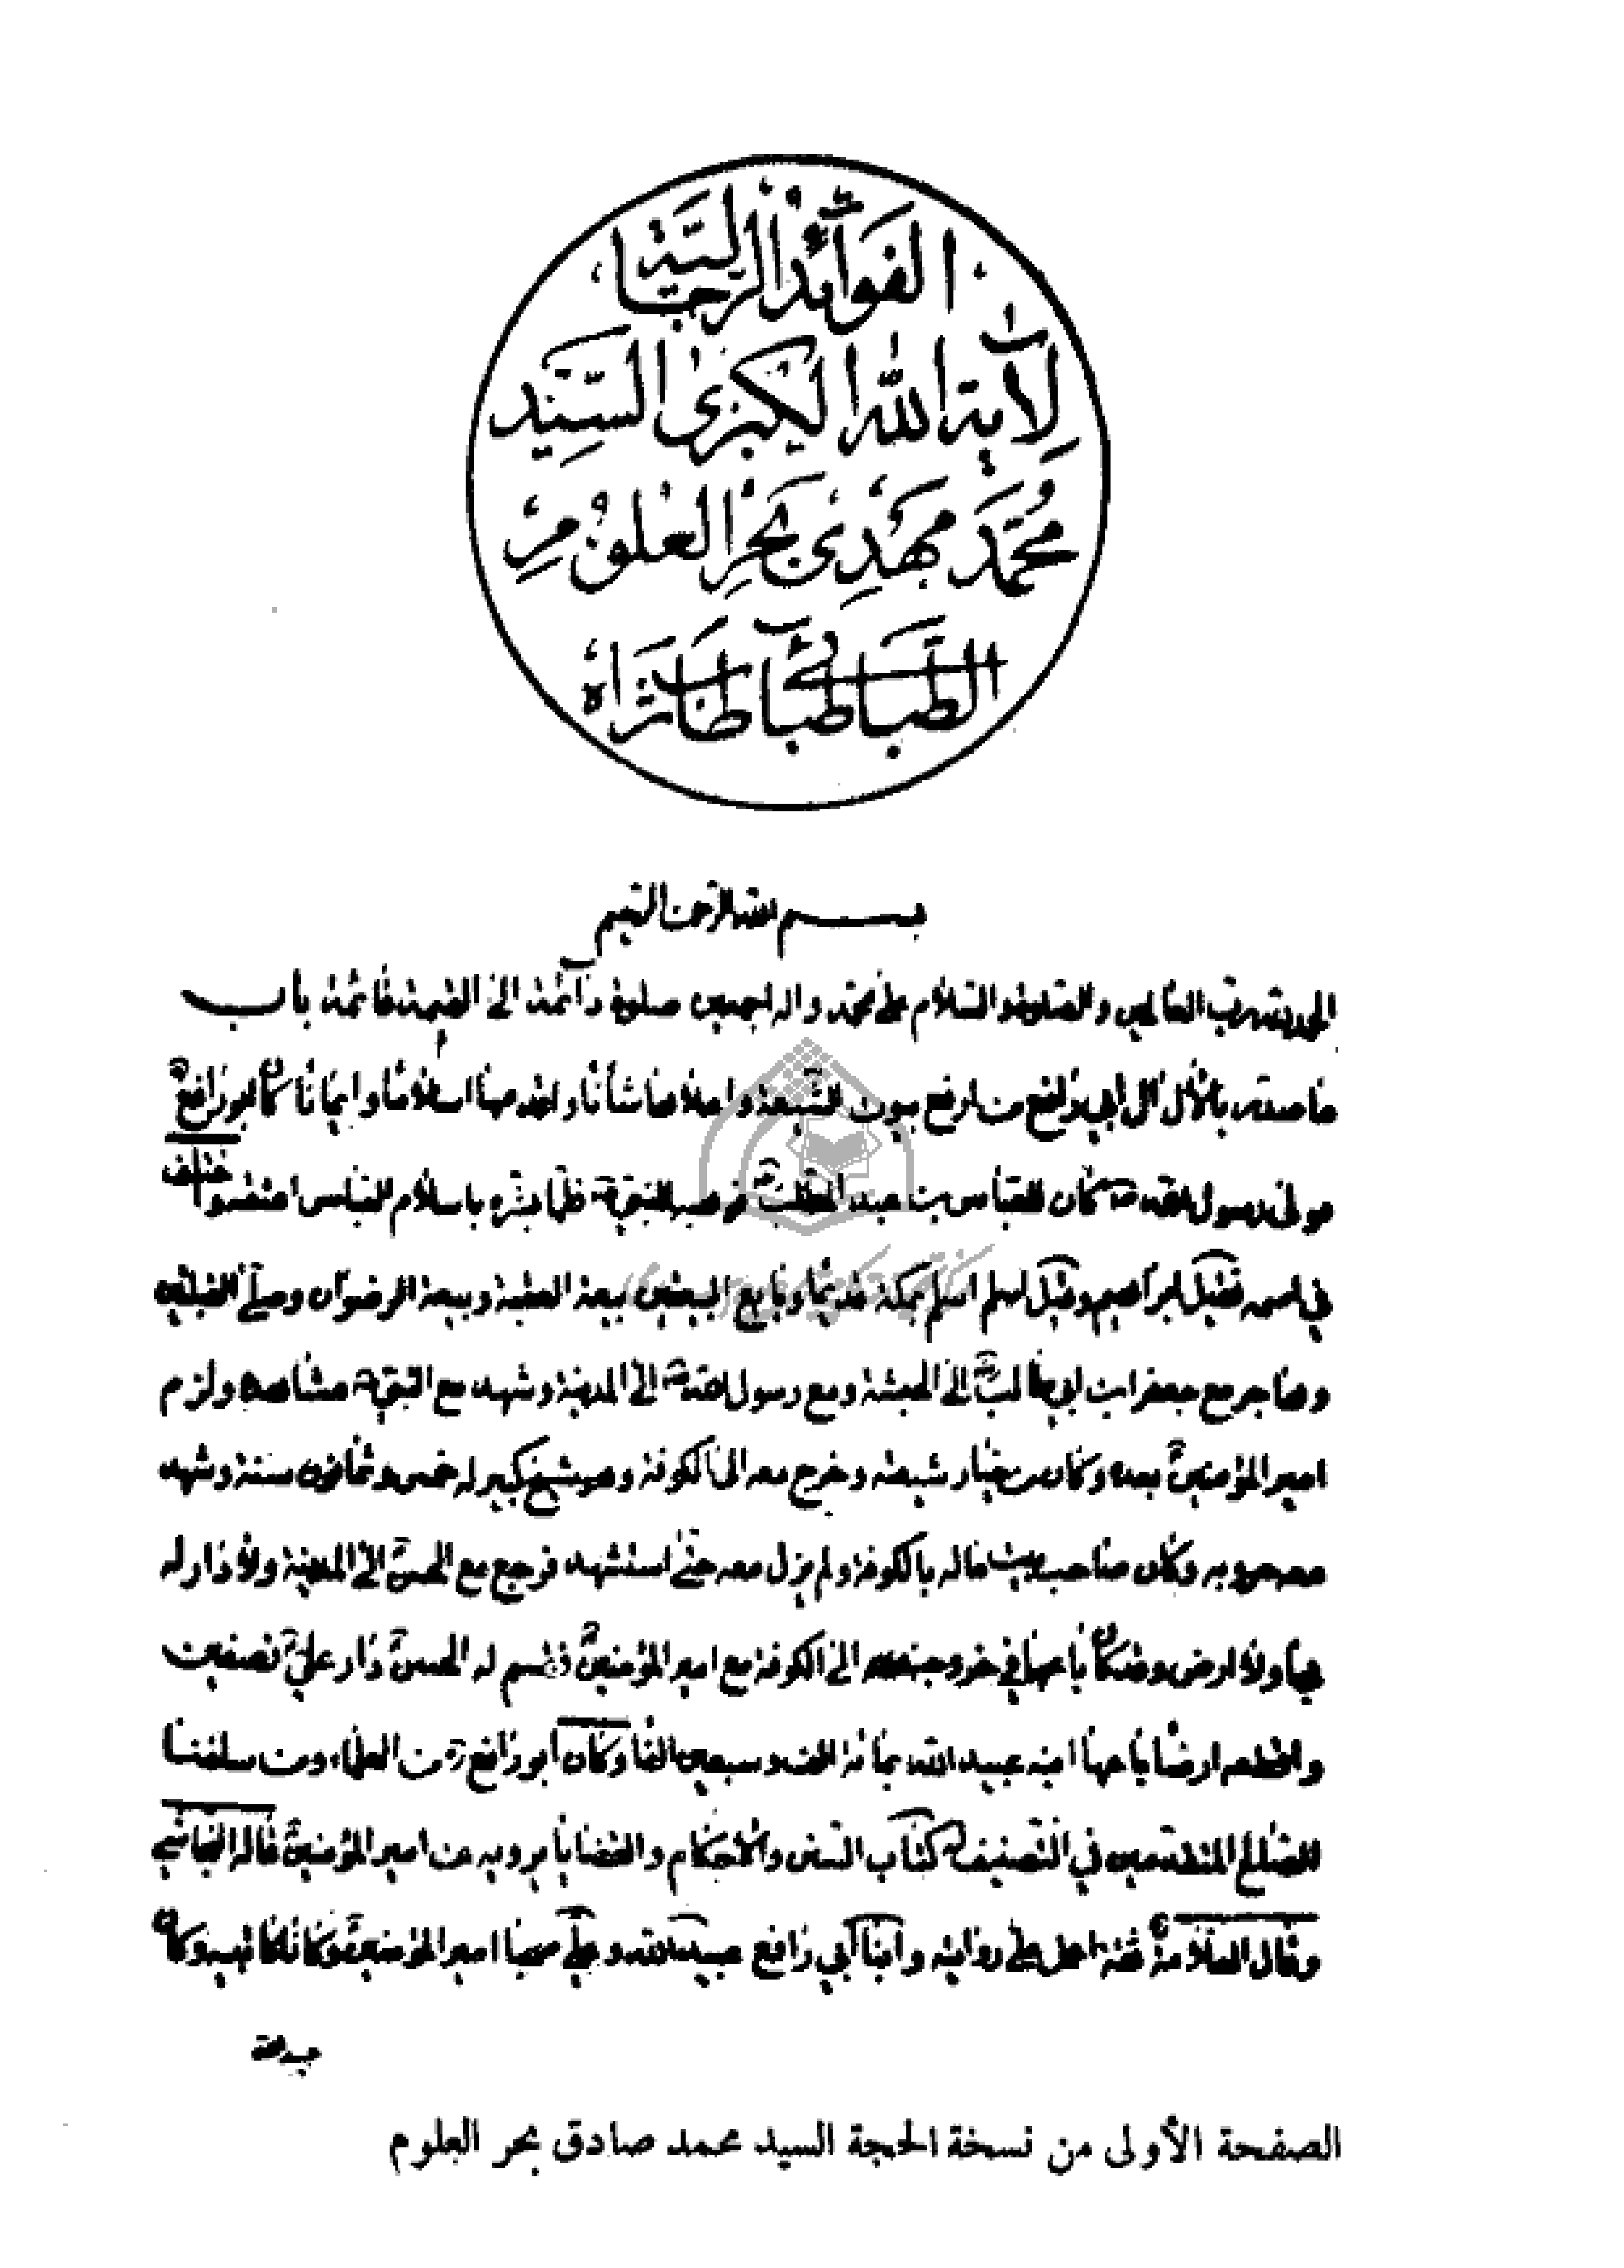 الفَوَائِد الرِّجَالِيَّة
لِآيَةِ اللهِ الكُبْرَى السَّيِّد
مُحَمَّد مَهْدِي بَحْرِ العُلُومِ
الطَّبَاطَبَائِي طَابَ ثَرَاهُ
بسم الله الرحمن الرحيم
الحمد لله رب العالمين والصلوة والسلام على محمد واله اجمعين صلوة دائمة الى القيمة قائمة باب
ما صدر بالآل آل ابي رافع من ارفع بيوت الشيعة واعلاها شأنا واقدمها اسلاما وايمانا كان ابو رافع
مولى رسول الله ص كان للعباس بن عبد المطلب فوهبه للنبي ص فلما بشره باسلام العباس اعتقه واختلف
في اسمه فقيل ابراهيم وقيل اسلم اسلم بمكة قديما وبايع البيعتين بيعة العقبة وبيعة الرضوان وصلى القبلتين
وهاجر مع جعفر ابن ابي طالب الى الحبشة ومع رسول الله ص الى المدينة وشهد مع النبي ص مشاهده ولزم
امير المؤمنين بعده وكان من خيار شيعته وخرج معه الى الكوفة وهو شيخ كبير له خمس وثمانون سنة وشهد
معه حروبه وكان صاحب بيت ماله بالكوفة ولم يزل معه حتى استشهد فرجع مع الحسن الى المدينة ولا دار له
بها ولا ارض وقد كان باعها في خروجه الى الكوفة مع امير المؤمنين فقسم له الحسن دار علي نصفين
واقطعه ارضا باعها ابنه عبيد الله بمائة الف وسبعين الفا وكان ابو رافع من العلماء ومن سلفنا
الصالح المتقدمين في التصنيف له كتاب السنن والاحكام والقضايا يرويه عن امير المؤمنين قاله النجاشي
وقال العلامة ثقة اعمل على روايته وابنا ابي رافع عبيد الله وعلي صحبا امير المؤمنين وكانا كاتبيه وكان
عبيد الله
الصفحة الأولى من نسخة الحجة السيد محمد صادق بحر العلوم